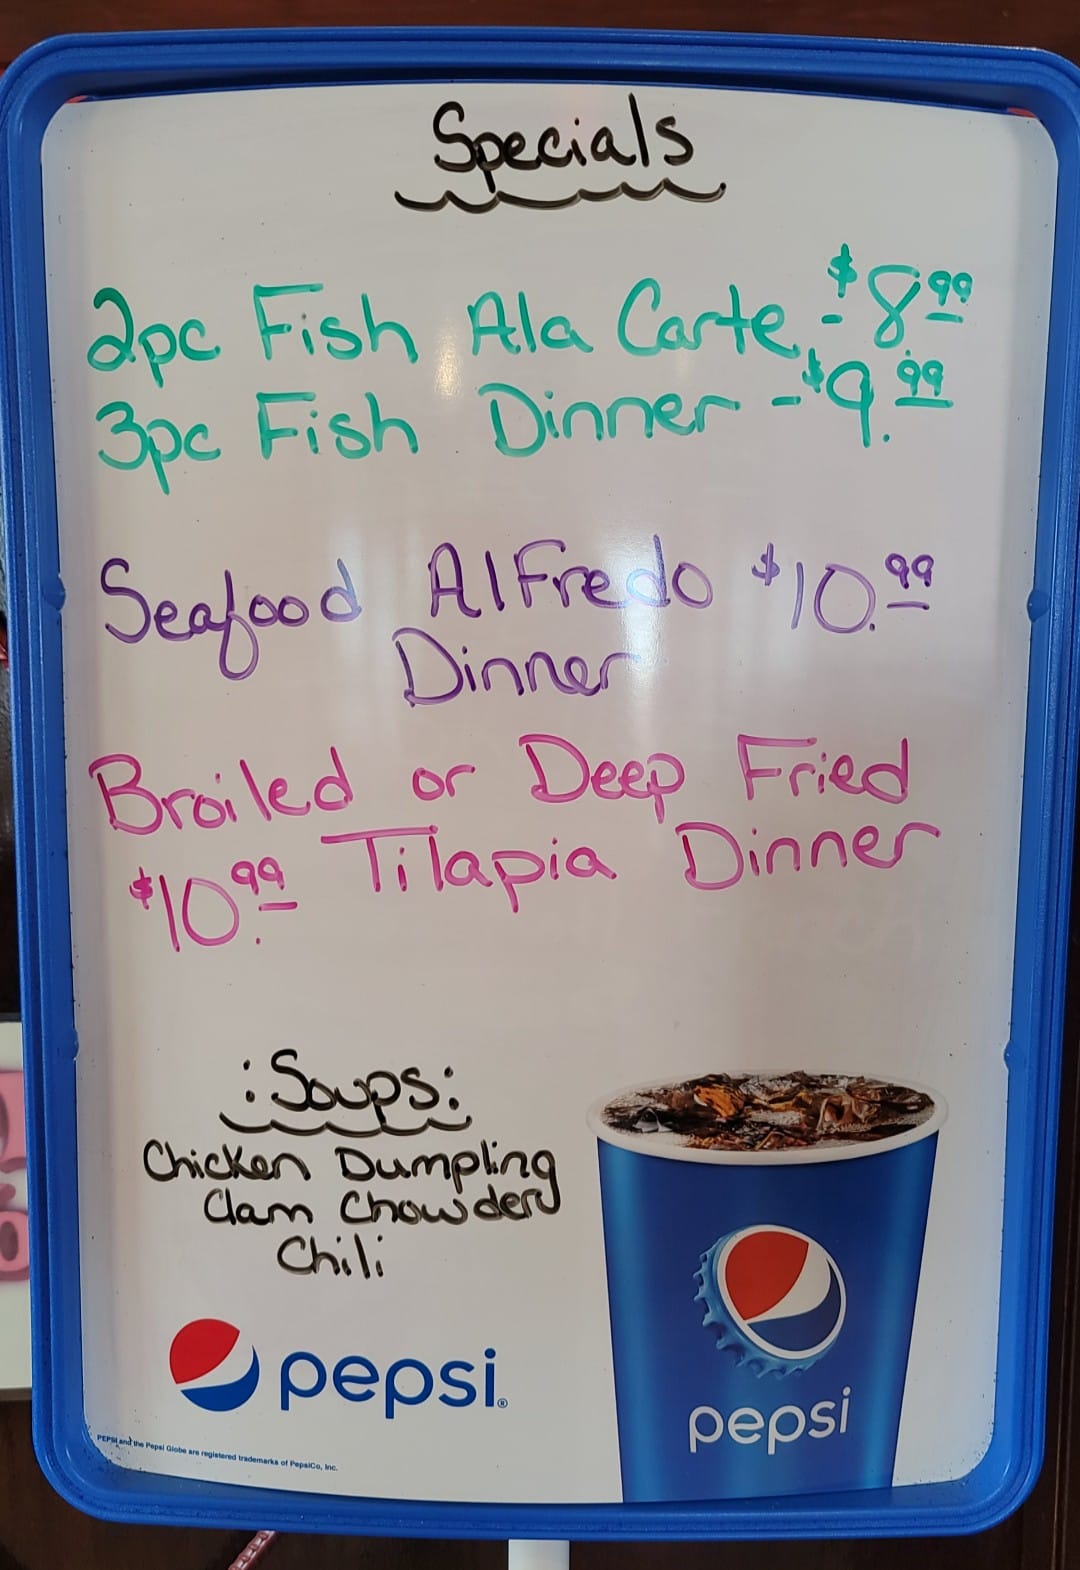 Specials
2pc Fish Ala Carte - $8.99
3pc Fish Dinner - $9.99
Seafood AlFredo $10.99
Dinner
Broiled or Deep Fried
$10.99 Tilapia Dinner
:Soups:
Chicken Dumpling
Clam Chowder
Chili
pepsi®
pepsi
PEPSI and the Pepsi Globe are registered trademarks of PepsiCo, Inc.